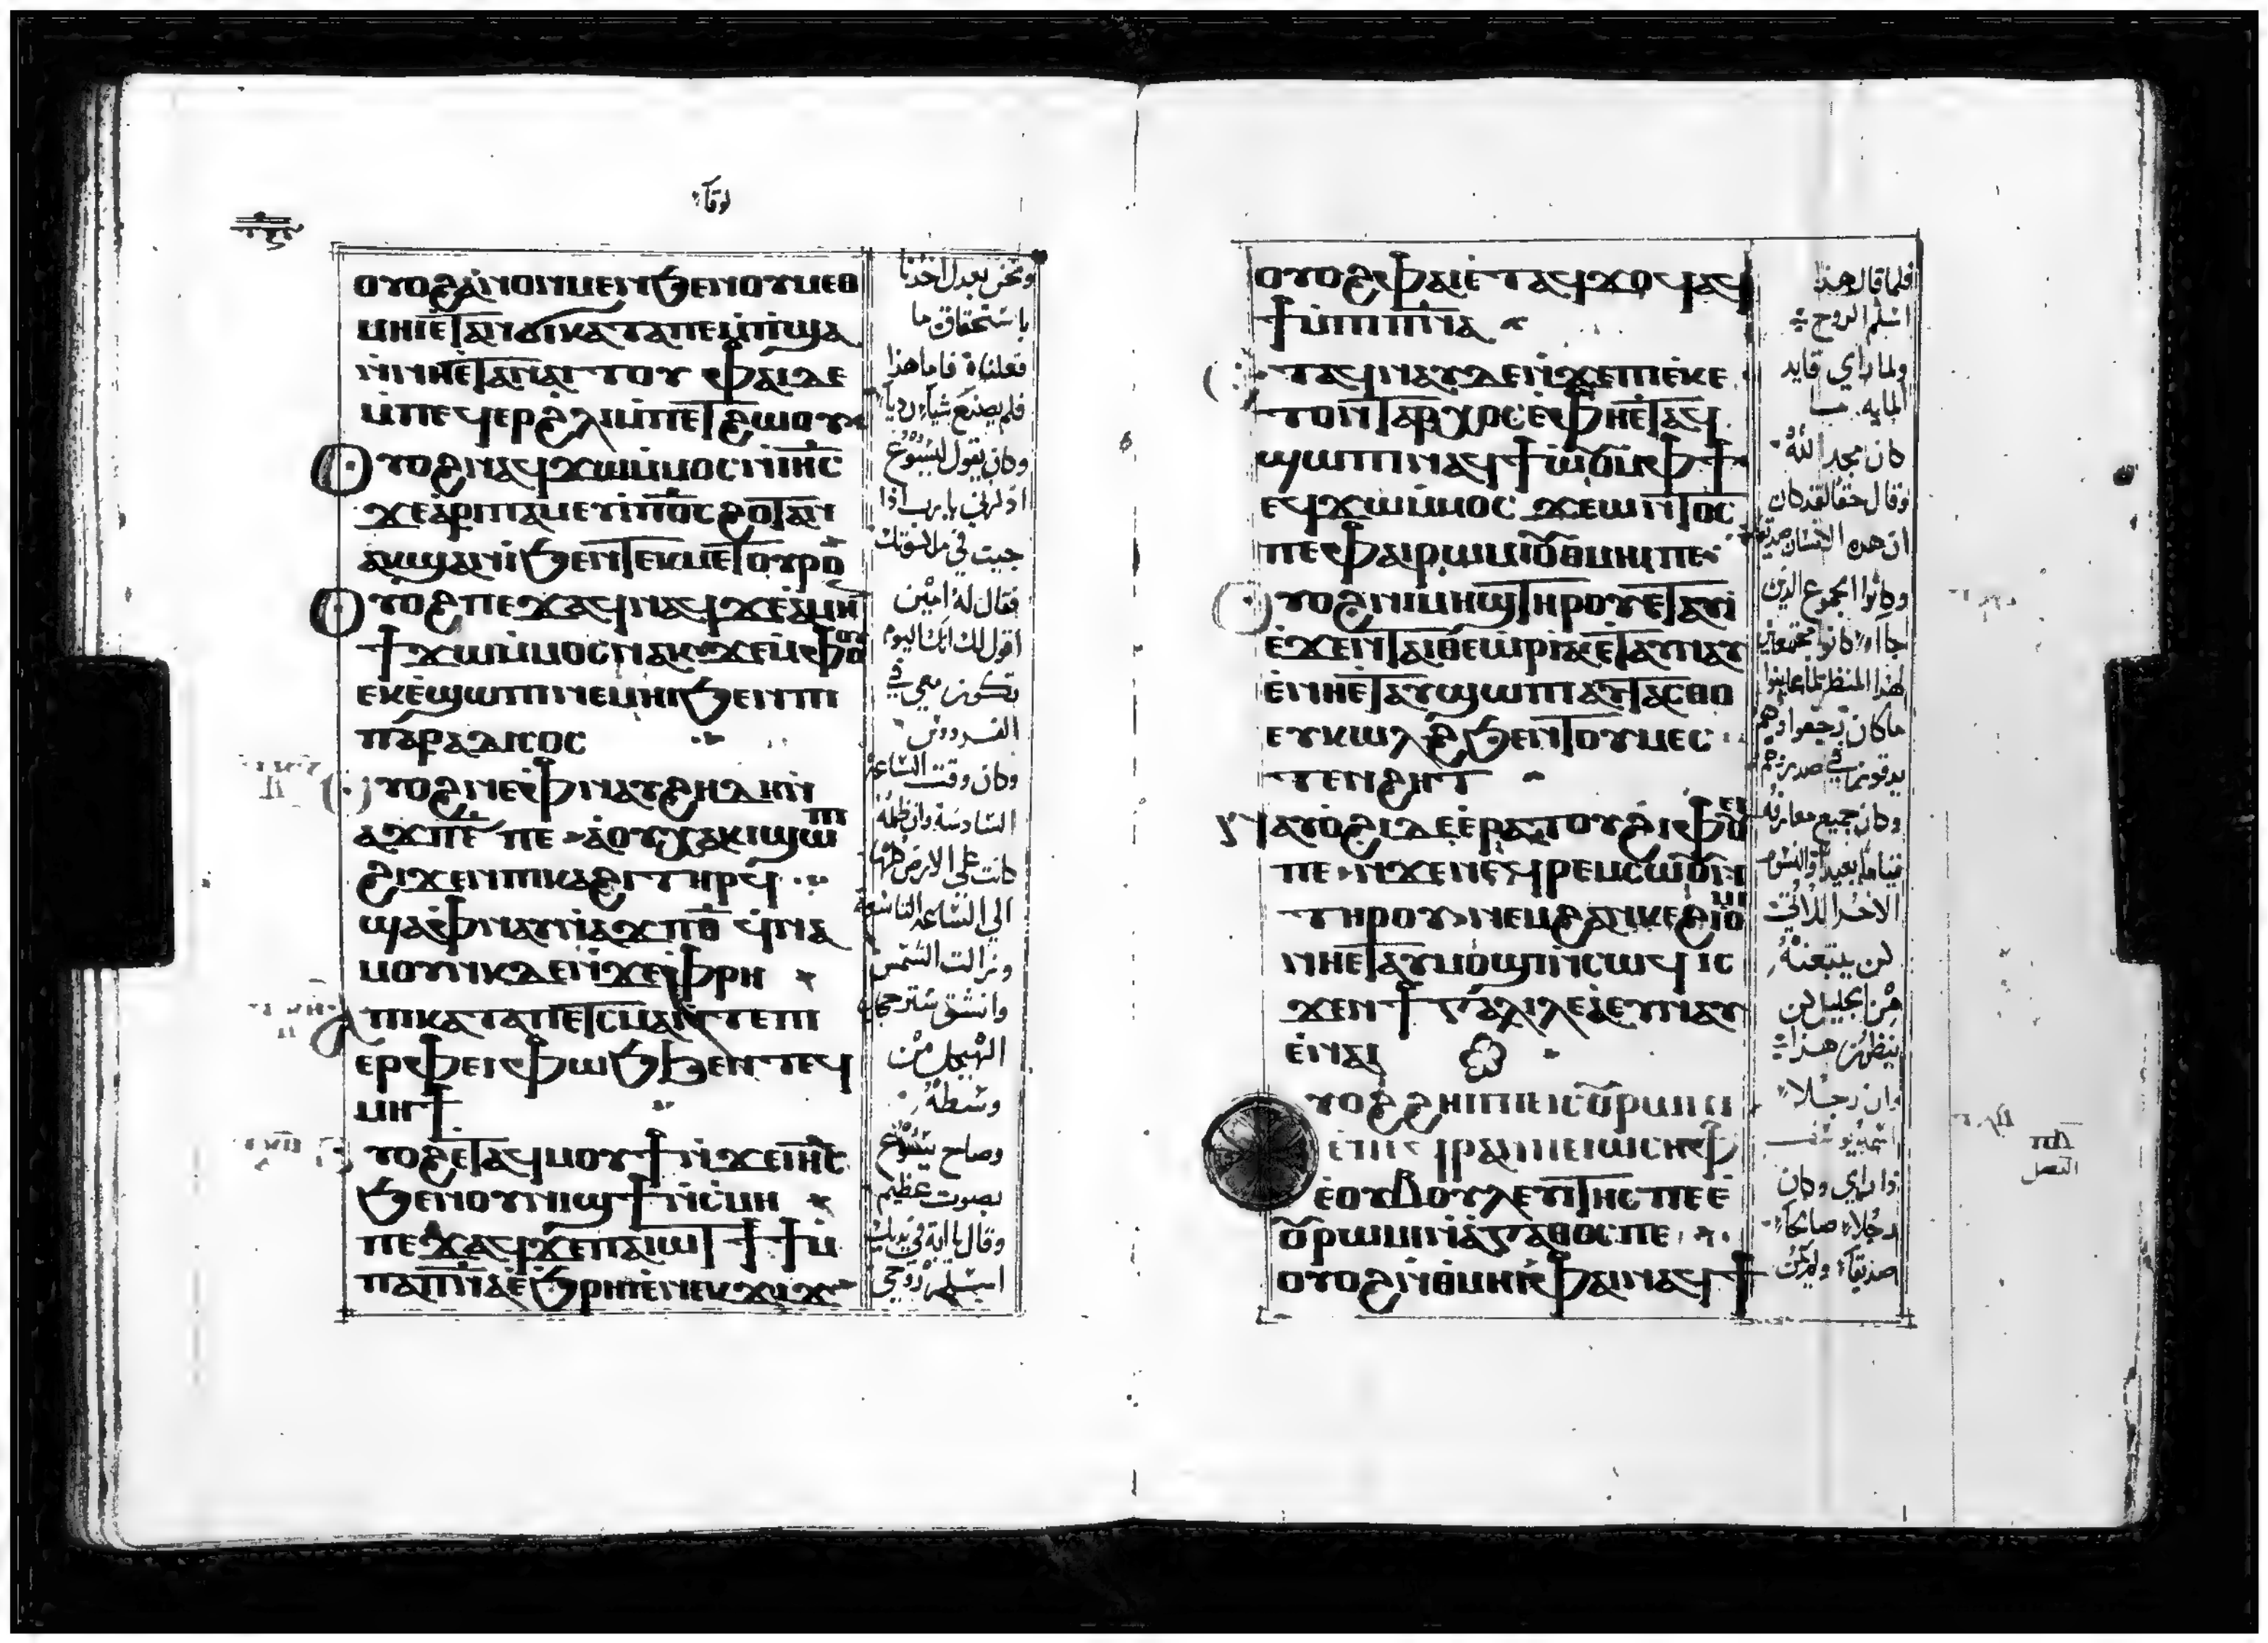 لوقا
ⲟⲩⲟϩ ⲁⲛⲟⲛ ⲙⲉⲛ ϧⲉⲛ ⲟⲩⲙⲉⲑ
ⲙⲏⲓ ⲉⲧⲁⲛϭⲓ ⲕⲁⲧⲁ ⲡⲉⲙⲡϣⲁ
ⲛⲛⲏⲉⲧⲁⲛⲁⲓⲧⲟⲩ ⲫⲁⲓ ⲇⲉ
ⲙⲡⲉϥⲉⲣ ϩⲗⲓ ⲙⲡⲉⲧϩⲱⲟⲩ
ⲟⲩⲟϩ ⲛⲁϥϫⲱ ⲙⲙⲟⲥ ⲛⲓⲏⲥ
ϫⲉ ⲁⲣⲓⲡⲁⲙⲉⲩⲓ ⲡⲟⲥ ϩⲟⲧⲁⲛ
ⲁⲕϣⲁⲛⲓ ϧⲉⲛ ⲧⲉⲕⲙⲉⲧⲟⲩⲣⲟ
ⲟⲩⲟϩ ⲡⲉϫⲁϥ ⲛⲁϥ ϫⲉ ⲁⲙⲏⲛ
ϯϫⲱ ⲙⲙⲟⲥ ⲛⲁⲕ ϫⲉ ⲙⲫⲟⲟⲩ
ⲉⲕⲉϣⲱⲡⲓ ⲛⲉⲙⲏⲓ ϧⲉⲛ ⲡⲓ
ⲡⲁⲣⲁⲇⲓⲥⲟⲥ
ⲟⲩⲟϩ ⲛⲉ ⲫⲛⲁⲩ ϩⲏⲇⲏ ⲛ
ⲁϫⲡ ⲋ ⲡⲉ ⲁⲟⲩⲭⲁⲕⲓ ϣⲱⲡⲓ
ϩⲓϫⲉⲛ ⲡⲓⲕⲁϩⲓ ⲧⲏⲣϥ
ϣⲁ ⲫⲛⲁⲩ ⲛⲁϫⲡ ⲑ ϥⲛⲁ
ⲙⲟⲩⲛⲕ ⲇⲉ ⲛϫⲉ ⲫⲣⲏ
ⲁ ⲡⲓⲕⲁⲧⲁⲡⲉⲧⲥⲙⲁ ⲛⲧⲉ ⲡⲓ
ⲉⲣⲫⲉⲓ ⲫⲱϧ ϧⲉⲛ ⲧⲉϥ
ⲙⲏϯ
ⲟⲩⲟϩ ⲉⲧⲁϥⲙⲟⲩϯ ⲛϫⲉ ⲓⲏⲥ
ϧⲉⲛ ⲟⲩⲛⲓϣϯ ⲛⲥⲙⲏ
ⲡⲉϫⲁϥ ϫⲉ ⲡⲁⲓⲱⲧ ϯϯ ⲙ
ⲡⲁⲡⲛⲁ ⲉϧⲣⲏⲓ ⲉⲛⲉⲕϫⲓϫ
ونحن بعدل اخذنا
باستحقاق ما
فعلناه فاما هذا
فلم يصنع شيا رديا
وكان يقول ليسوع
اذكرني يا رب اذا
جيت في ملكوتك
فقال له امين
اقول لك انك اليوم
تكون معي في
الفردوس
وكان وقت الساعة
السادسة وان ظلمة
كانت على الارض كلها
الي الساعة التاسعة
وزالت الشمس
وانشق ستر حجاب
الهيكل من
وسطه
وصاح يسوع
بصوت عظيم
وقال يا ابة في يديك
اسلم روحي
ⲟⲩⲟϩ ⲫⲁⲓ ⲉⲧⲁϥϫⲟϥ ⲁϥ
ϯ ⲙⲡⲓⲡⲛⲁ
ⲉⲧⲁϥⲛⲁⲩ ⲇⲉ ⲛϫⲉ ⲡⲓⲉⲕⲉ
ⲧⲟⲛⲧⲁⲣⲭⲟⲥ ⲉⲫⲏⲉⲧⲁϥ
ϣⲱⲡⲓ ⲛⲁϥϯ ⲱⲟⲩ ⲙⲫϯ
ⲉϥϫⲱ ⲙⲙⲟⲥ ϫⲉ ⲟⲛⲧⲱⲥ
ⲡⲉ ⲫⲁⲓ ⲣⲱⲙⲓ ⲟⲩⲑⲙⲏⲓ ⲡⲉ
ⲟⲩⲟϩ ⲛⲓⲙⲏϣ ⲧⲏⲣⲟⲩ ⲉⲧⲁⲩⲓ
ⲉϫⲉⲛ ⲧⲁⲓⲑⲉⲱⲣⲓⲁ ⲉⲧⲁⲩⲛⲁⲩ
ⲉⲛⲏⲉⲧⲁⲩϣⲱⲡⲓ ⲁⲩⲧⲁⲥⲑⲟ
ⲉⲩⲕⲱⲗϩ ϧⲉⲛ ⲧⲟⲩⲙⲉⲥ
ⲧⲉⲛϩⲏⲧ
ⲛⲁⲩⲟϩⲓ ⲇⲉ ⲉⲣⲁⲧⲟⲩ ϩⲓⲫⲟⲩⲉⲓ
ⲡⲉ ⲛϫⲉ ⲛⲉϥⲣⲉⲙⲥⲱⲟⲩⲛ
ⲧⲏⲣⲟⲩ ⲛⲉⲙ ϩⲁⲛⲕⲉϩⲓⲟⲙⲓ
ⲛⲏⲉⲧⲁⲩⲙⲟϣⲓ ⲛⲥⲱϥ ⲓⲥ
ϫⲉⲛ ϯⲅⲁⲗⲓⲗⲉⲁ ⲉⲩⲛⲁⲩ
ⲉⲛⲁⲓ
ⲟⲩⲟϩ ϩⲏⲡⲡⲉ ⲓⲥ ⲟⲩⲣⲱⲙⲓ
ⲉⲡⲉϥⲣⲁⲛ ⲡⲉ ⲓⲱⲥⲏⲫ
ⲉⲟⲩⲃⲟⲩⲗⲉⲩⲧⲏⲥ ⲡⲉ ⲉ
ⲟⲩⲣⲱⲙⲓ ⲛⲁⲅⲁⲑⲟⲥ ⲡⲉ
ⲟⲩⲟϩ ⲛⲑⲙⲏⲓ ⲫⲁⲓ ⲛⲁϥϯ
فلما قال هذا
اسلم الروح
ولما راي قايد
المايه
كان مجد الله
وقال حقا لقد كان
ان هذا الانسان صديق
وكانوا الجموع الذين
جاا وكانوا مجتمعين
لهذا المنظر لما عاينوا
ما كان رجعوا وهم
يدقون في صدورهم
وكان جميع معارفه
قياما بعيدا والنسوة
الاخر اللواتي
كن يتبعنه
من الجليل كن
ينظرن هذا
وان رجلا
اسمه يوسف
ذا راي وكان
رجلا صالحا
صديقا ولم يكن
الفصل